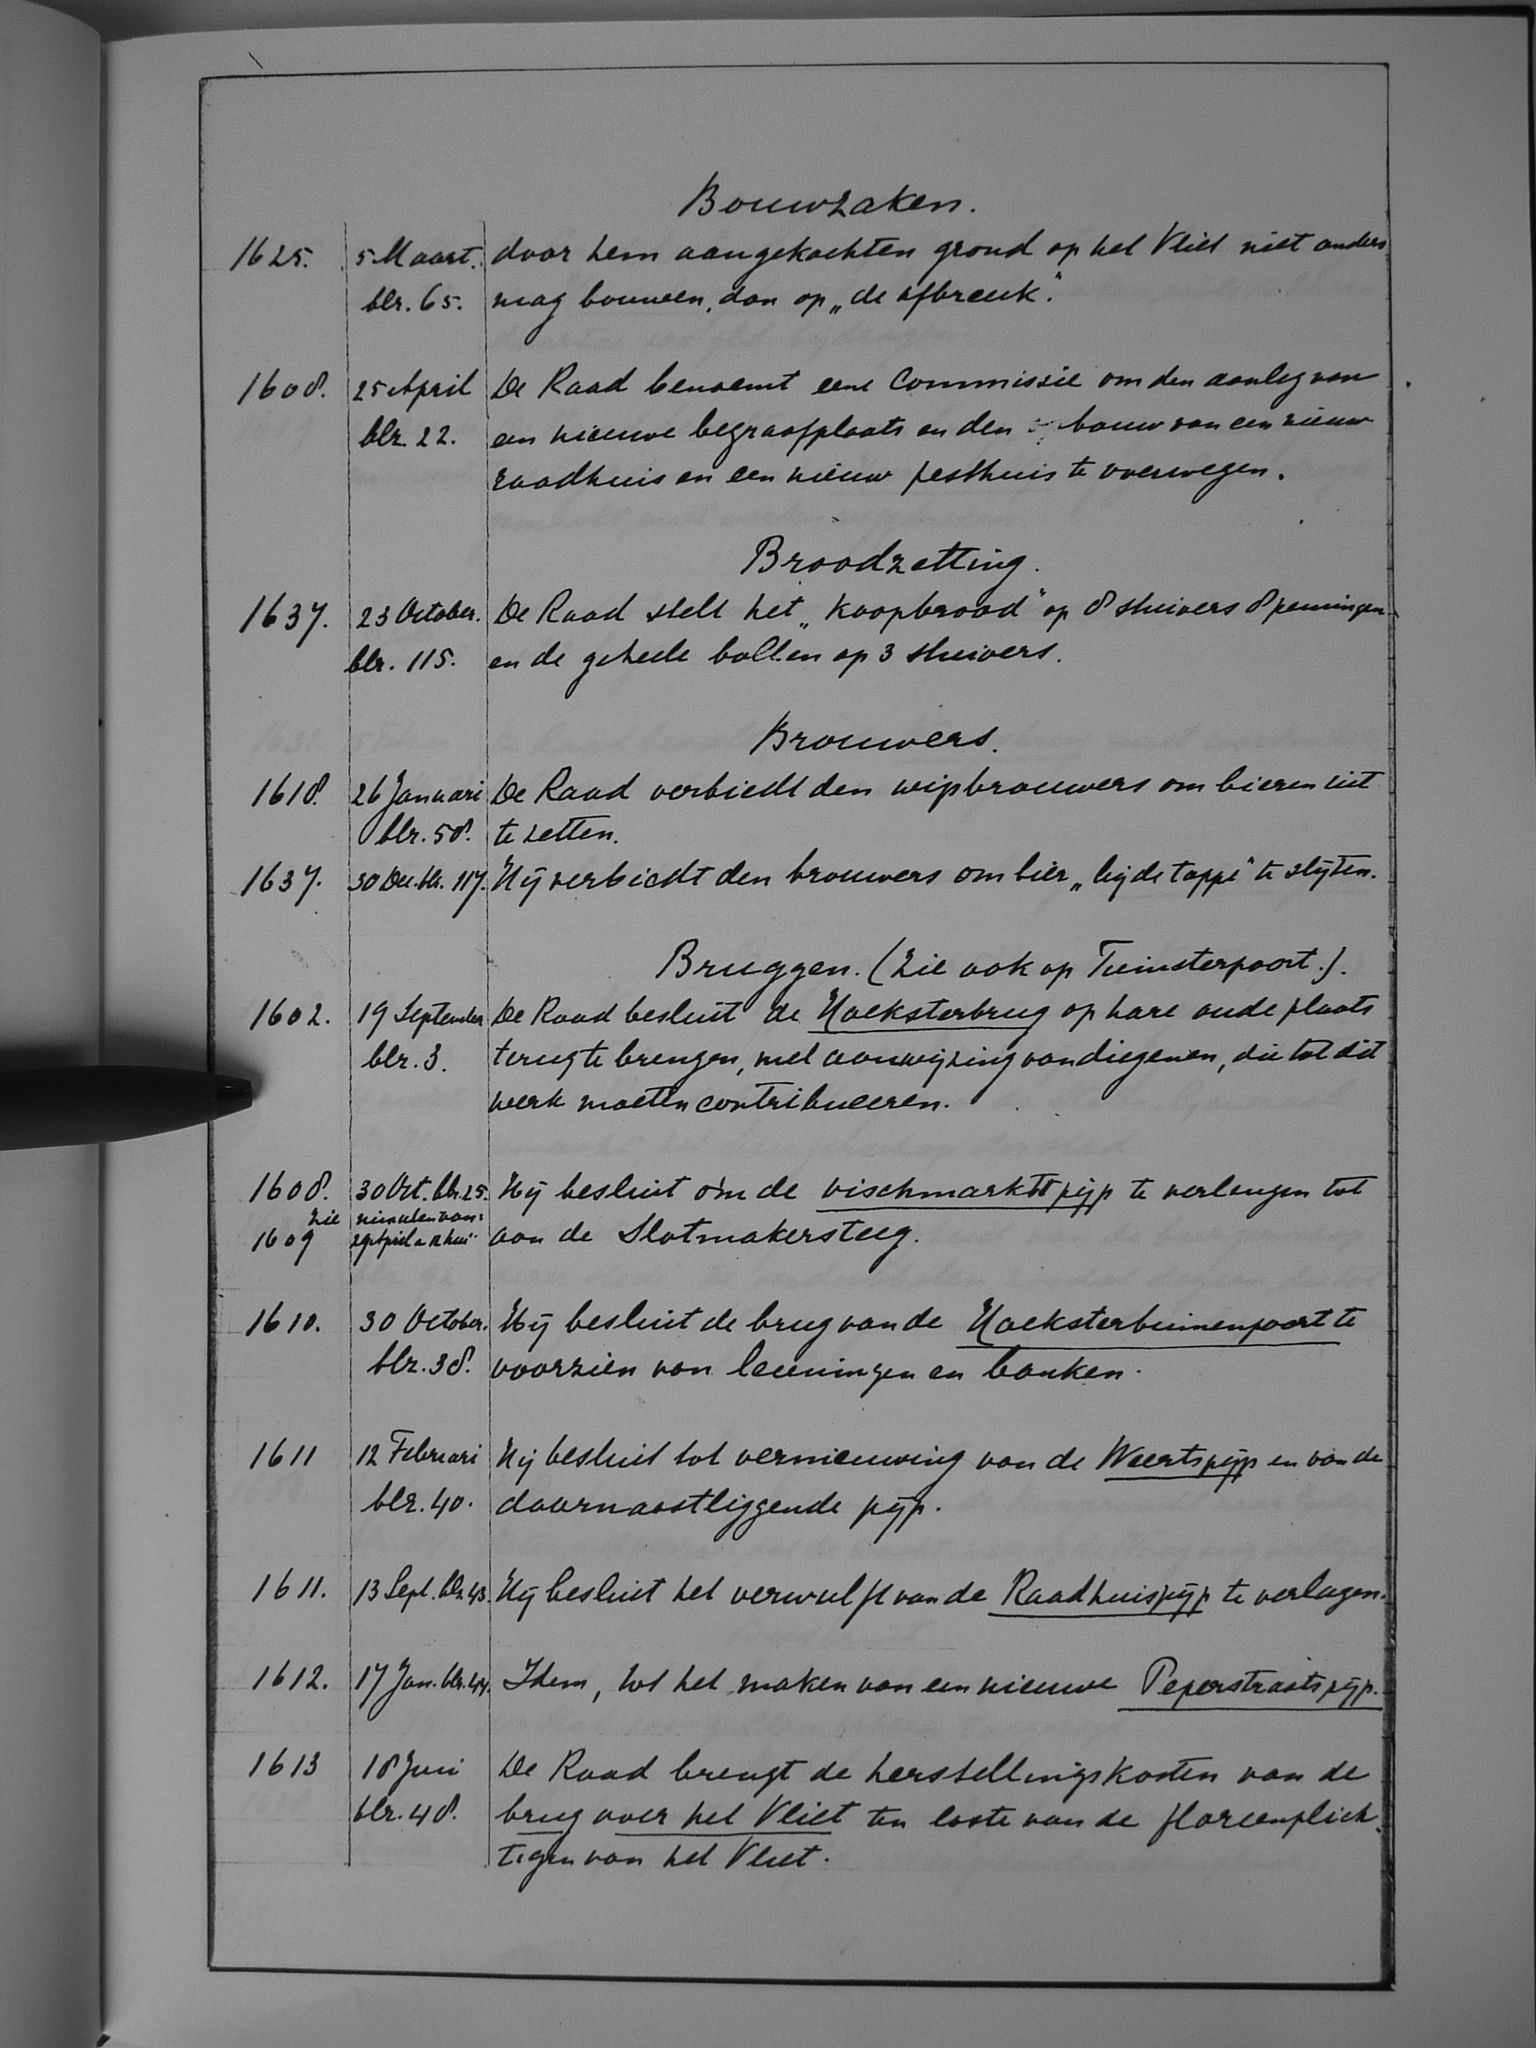 Bouwzaken.
1625. 5 Maart. door hem aangekochten grond op het Vliet niet anders
blz. 65. mag bouwen, dan op „de afbreuk".
1608. 25 April De Raad benoemt eene Commissie om den aanleg van
blz. 22. een nieuwe begraafplaats en den bouw van een nieuw
raadhuis en een nieuw pesthuis te overwegen.
Broodzetting.
1637. 23 October. De Raad stelt het „koopbrood" op 8 stuivers 8 penningen
blz. 115. en de geheele bollen op 3 stuivers.
Brouwers.
1618. 26 Januari De Raad verbiedt den wipbrouwers om bieren uit
blz. 58. te zetten.
1637. 30 Dec. blz. 117. Hij verbiedt den brouwers om bier „bij de tappe" te slijten.
Bruggen. (Zie ook op Tuinsterpoort.).
1602. 19 September De Raad besluit de Hoeksterbrug op hare oude plaats
blz. 3. terug te brengen, met aanwijzing van diegenen, die tot dit
werk moeten contribueeren.
1608. 30 Oct. blz. 25. Hij besluit om de vischmarktpijp te verlengen tot
zie minuten van:
1609 29 April a R huis aan de Slotmakersteeg.
1610. 30 October. Hij besluit de brug van de Hoeksterbinnenpoort te
blz. 38. voorzien van leuningen en banken.
1611 12 Februari Hij besluit tot vernieuwing van de Weertspijp en van de
blz. 40. daarnaastliggende pijp.
1611. 13 Sept. blz. 43. Hij besluit het verwulft van de Raadhuispijp te verlagen.
1612. 17 Jan. blz. 44. Idem, tot het maken van een nieuwe Peperstraatspijp.
1613 18 Juni De Raad brengt de herstellingskosten van de
blz. 48. brug over het Vliet ten laste van de floreenplich-
tigen van het Vliet.